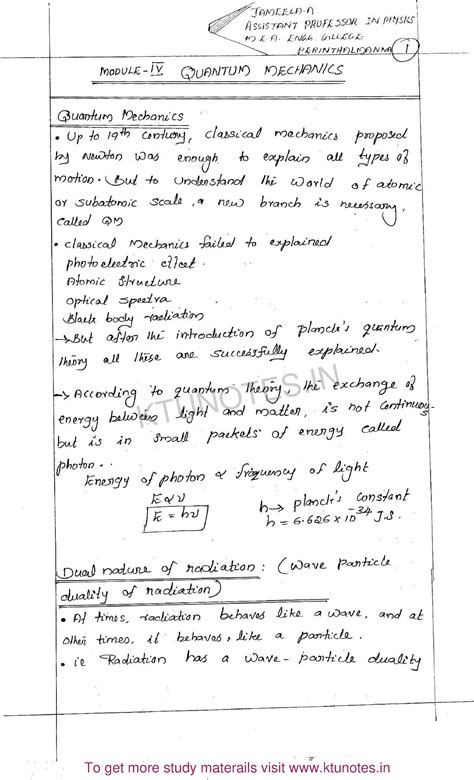 JAMEELA.A
ASSISTANT PROFESSOR IN PHYSICS
M.E.A. ENGG. COLLEGE
PERINTHALMANNA
1
MODULE-IV QUANTUM MECHANICS
Quantum Mechanics
• Up to 19th century, classical mechanics proposed
by Newton was enough to explain all types of
motion. But to understand the world of atomic
or subatomic scale, a new branch is necessary,
called QM
• classical Mechanics failed to explained
photoelectric effect.
Atomic structure
optical spectra
Black body radiation
→But after the introduction of planck's quantum
theory all these are successfully explained.
→ According to quantum theory, the exchange of
energy between light and matter, is not continuous
but is in small packets of energy called
photon..
Energy of photon ∝ frequency of light
E∝ν
E = hν
h→ planck's constant
h = 6.626×10^-34 J.S.
Dual nature of radiation: (wave particle
duality of radiation)
• At times, radiation behaves like a wave, and at
other times, it behaves, like a particle.
• ie Radiation has a wave-particle duality
KTUNOTES.IN
To get more study materails visit www.ktunotes.in